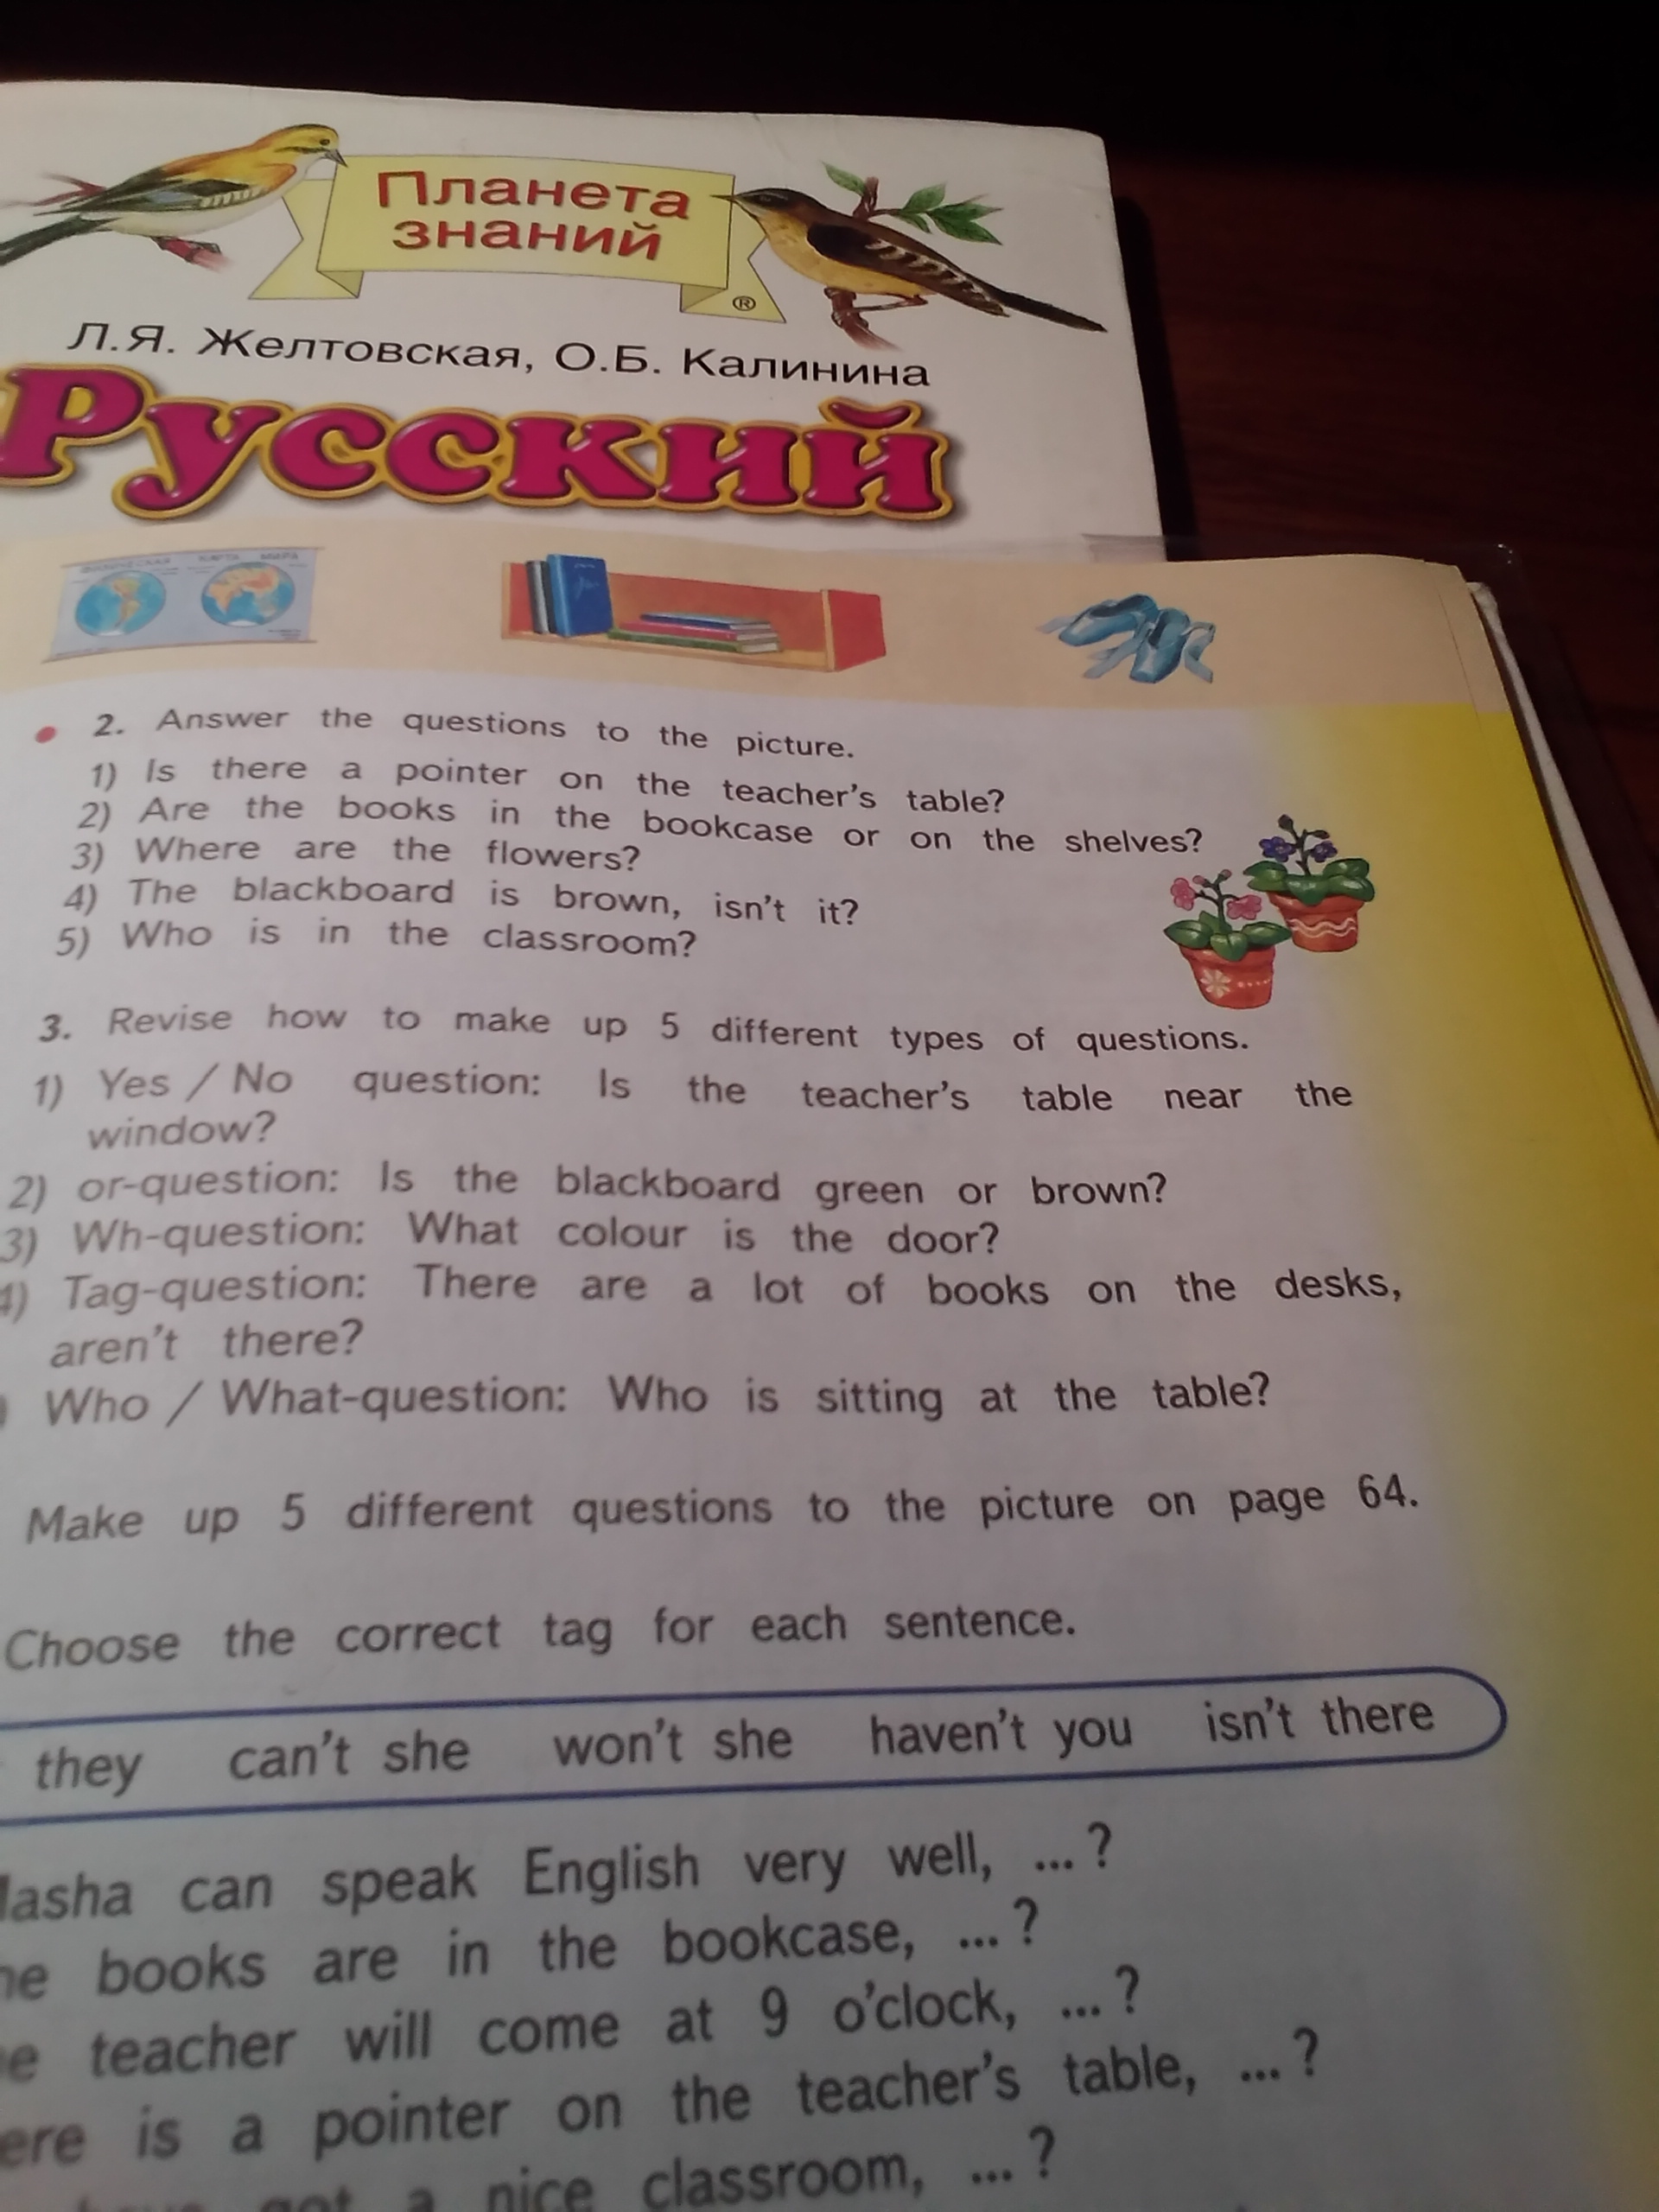 Планета
знаний
®
Л.Я. Желтовская, О.Б. Калинина
Русский
КАРТА МИРА
2. Answer the questions to the picture.
1) Is there a pointer on the teacher's table?
2) Are the books in the bookcase or on the shelves?
3) Where are the flowers?
4) The blackboard is brown, isn't it?
5) Who is in the classroom?
3. Revise how to make up 5 different types of questions.
1) Yes / No question: Is the teacher's table near the
window?
2) or-question: Is the blackboard green or brown?
3) Wh-question: What colour is the door?
4) Tag-question: There are a lot of books on the desks,
aren't there?
) Who / What-question: Who is sitting at the table?
Make up 5 different questions to the picture on page 64.
Choose the correct tag for each sentence.
they can't she won't she haven't you isn't there
asha can speak English very well, ... ?
he books are in the bookcase, ... ?
e teacher will come at 9 o'clock, ... ?
ere is a pointer on the teacher's table, ... ?
have got a nice classroom, ... ?